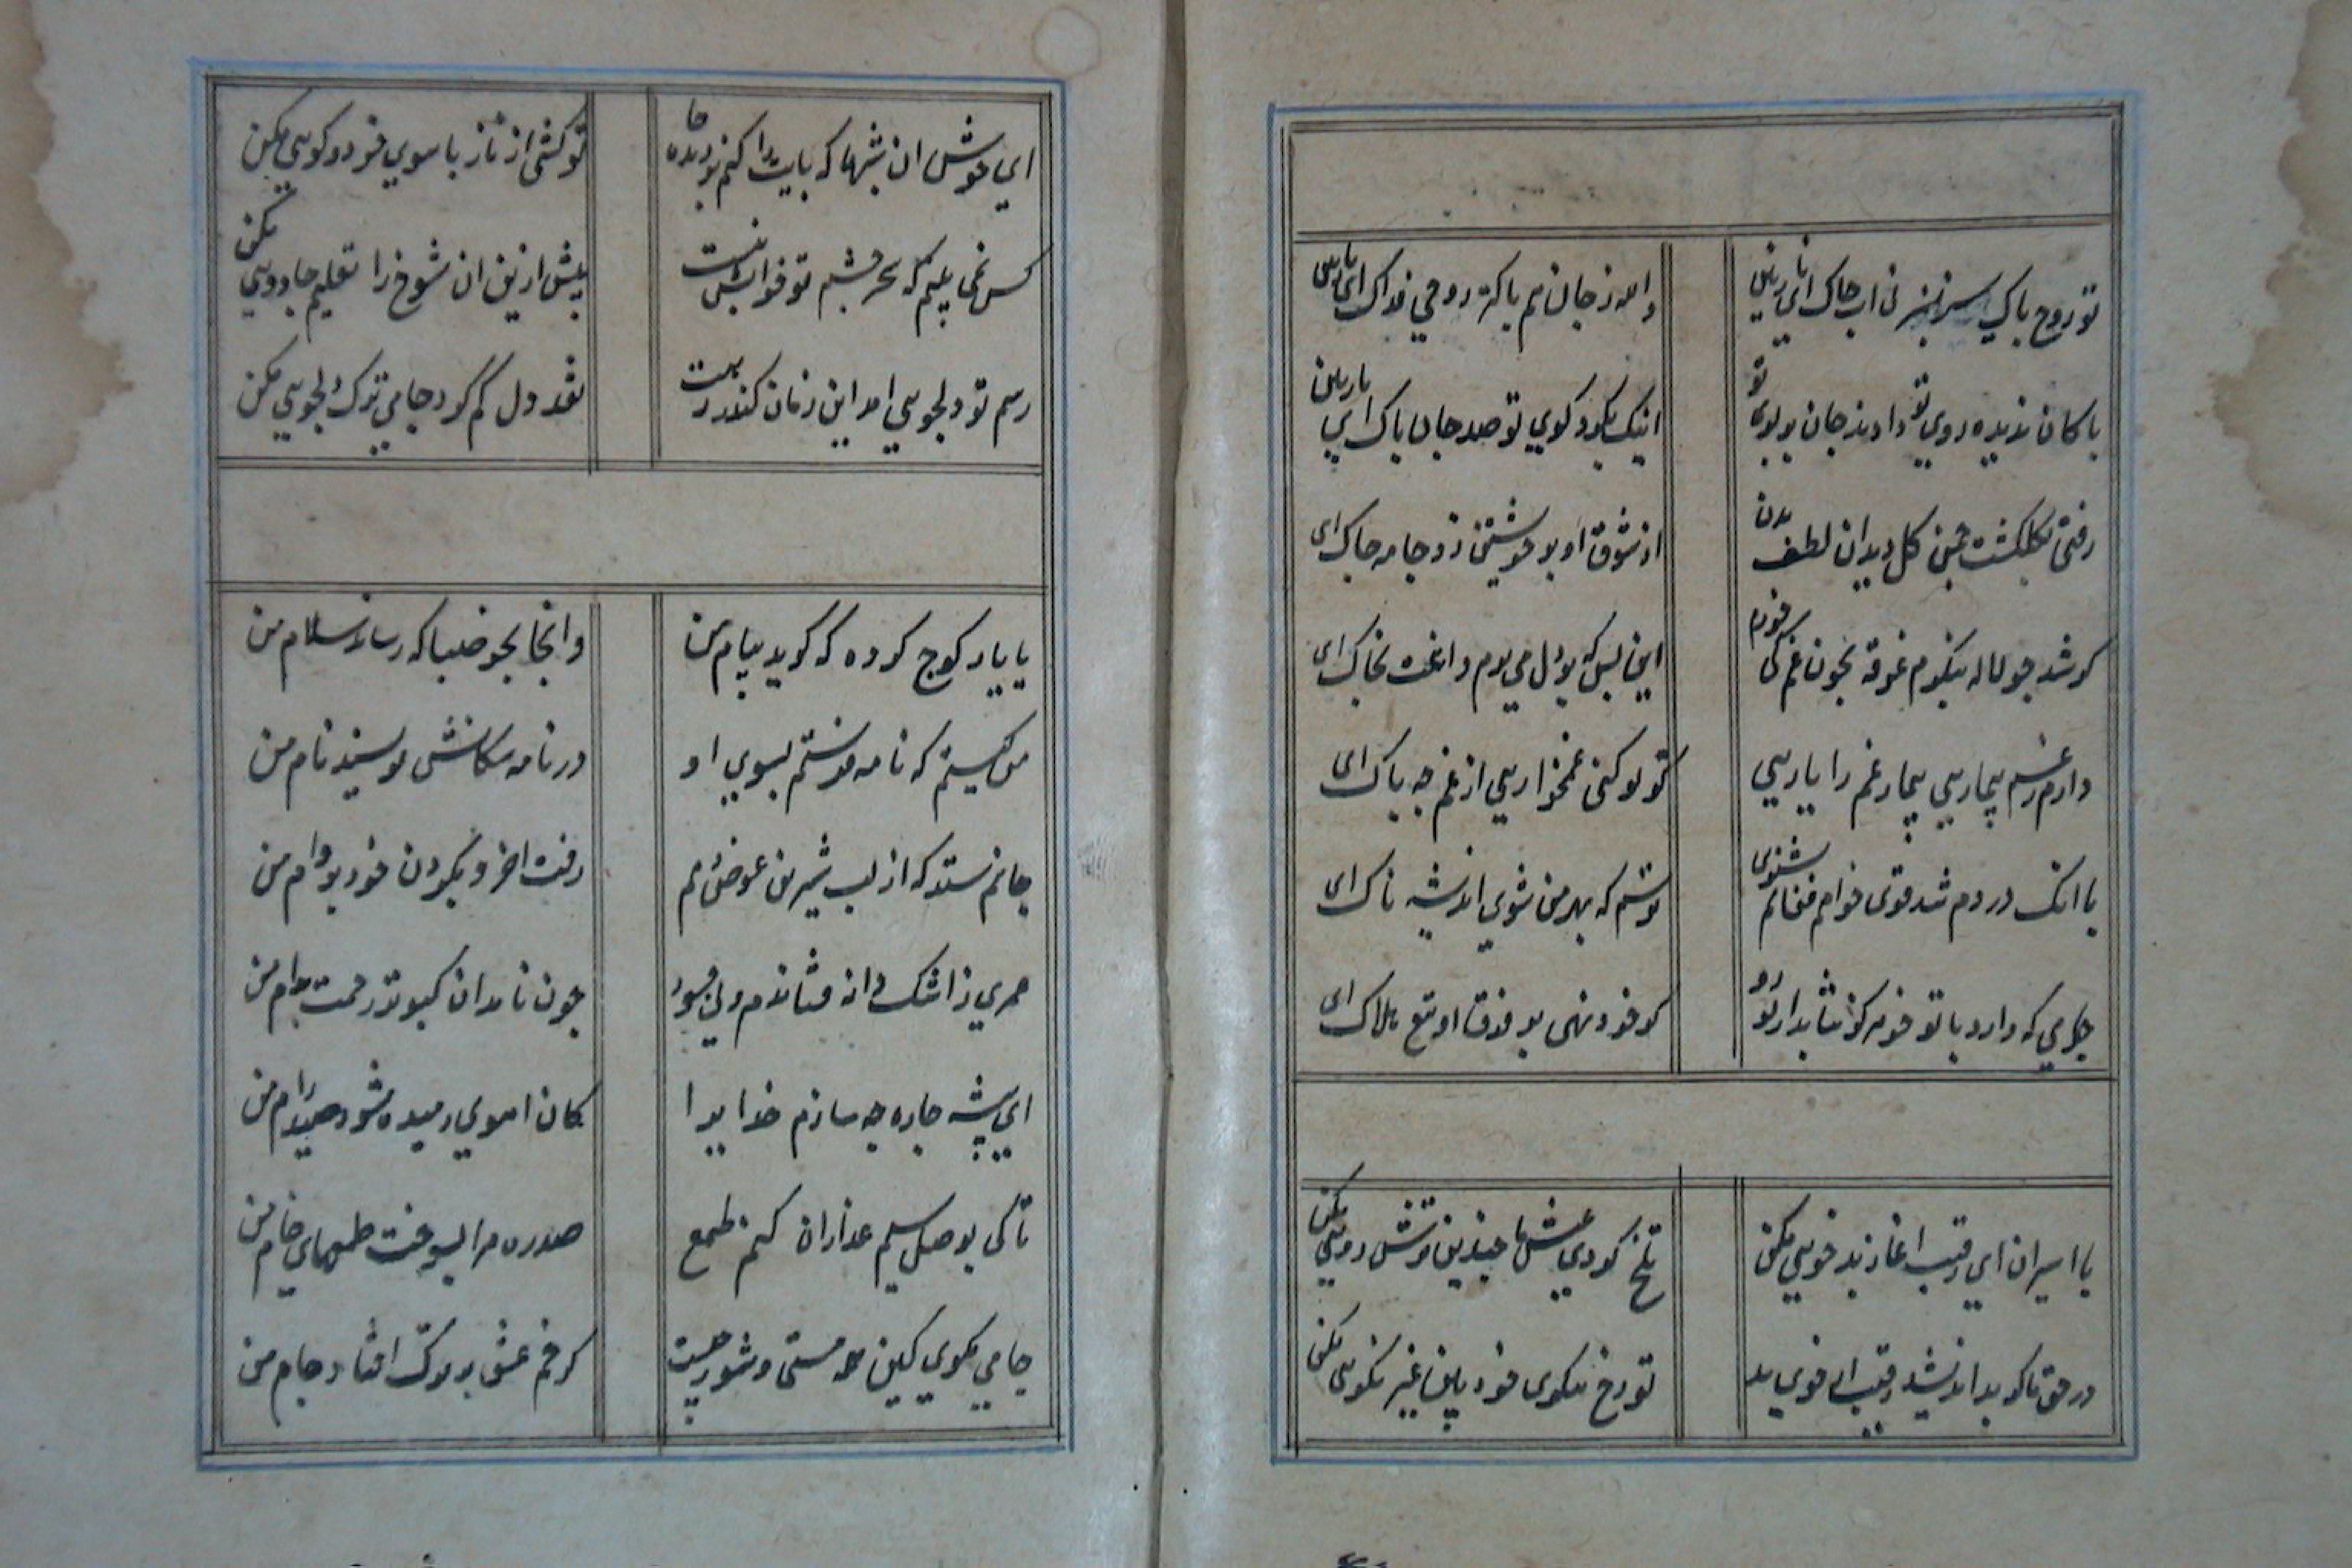 تو روح پاکی سر بسر نی آب خاک ای نازنین
والله ز جان هم پاکتر روحی فداک ای نازنین
پاکان ندیده روی تو دادند جان بر بوی تو
اینک بگرد کوی تو صد جان پاک ای نازنین
رفتی بگلگشت چمن گل دید آن لطف بدن
از شوق او بر خویشتن زد جامه چاک ای
گر شد چو لاله پیکرم غرقه بخون غم کی خورم
این بس که بر دل می برم داغت بخاک ای
دارم ز غم بیماریی بیمار غم را یاریی
گر تو کنی غمخواریی از غم چه باک ای
با آنک دردم شد قوی خواهم فغانم نشنوی
ترسم که بهر من شوی اندیشه ناک ای
جامی که دارد با تو خو گر تابد از تو رو
گر خود نهی بر فرق او تیغ هلاک ای
با اسیران ای رقیب آغاز بدخویی مکن
تلخ کردی عیش ما چندین ترش رویی مکن
در حق ما گر بد اندیشد رقیب از خوی بد
تو رخ نیکوی خود بین غیر نیکویی مکن
ای خوش آن شبها که پایت را کنم بر دیده جا
تو کشی از ناز پا سوی خود و گویی مکن
کس نمی بینم که سحر چشم تو خوابش نبست
بیش ازین آن شوخ را تعلیم جادویی مکن
رسم تو دلجویی آمد این زمان کندر رهت
نقد دل گم کرد جامی ترک دلجویی مکن
با یار کوچ کرده که گوید پیام من
وانجا بجز صبا که رساند سلام من
من کیستم که نامه فرستم بسوی او
در نامه سگانش نویسید نام من
جانم ستد که از لب شیرین عوض دهم
رفت آخر و بگردن خود برد وام من
عمری ز اشک دانه فشاندم ولی چسود
چون نامد آن کبوتر رحمت بدام من
ای پیشه چاره چه سازم خدایرا
کان آهوی رمیده شود صید رام من
تا کی بوصل سیم عذاران کنم طمع
صد ره مرا بسوخت طمعهای خام من
جامی مگوی کین همه مستی و شور چیست
کز خم عشق پر ترک افتاد جام من